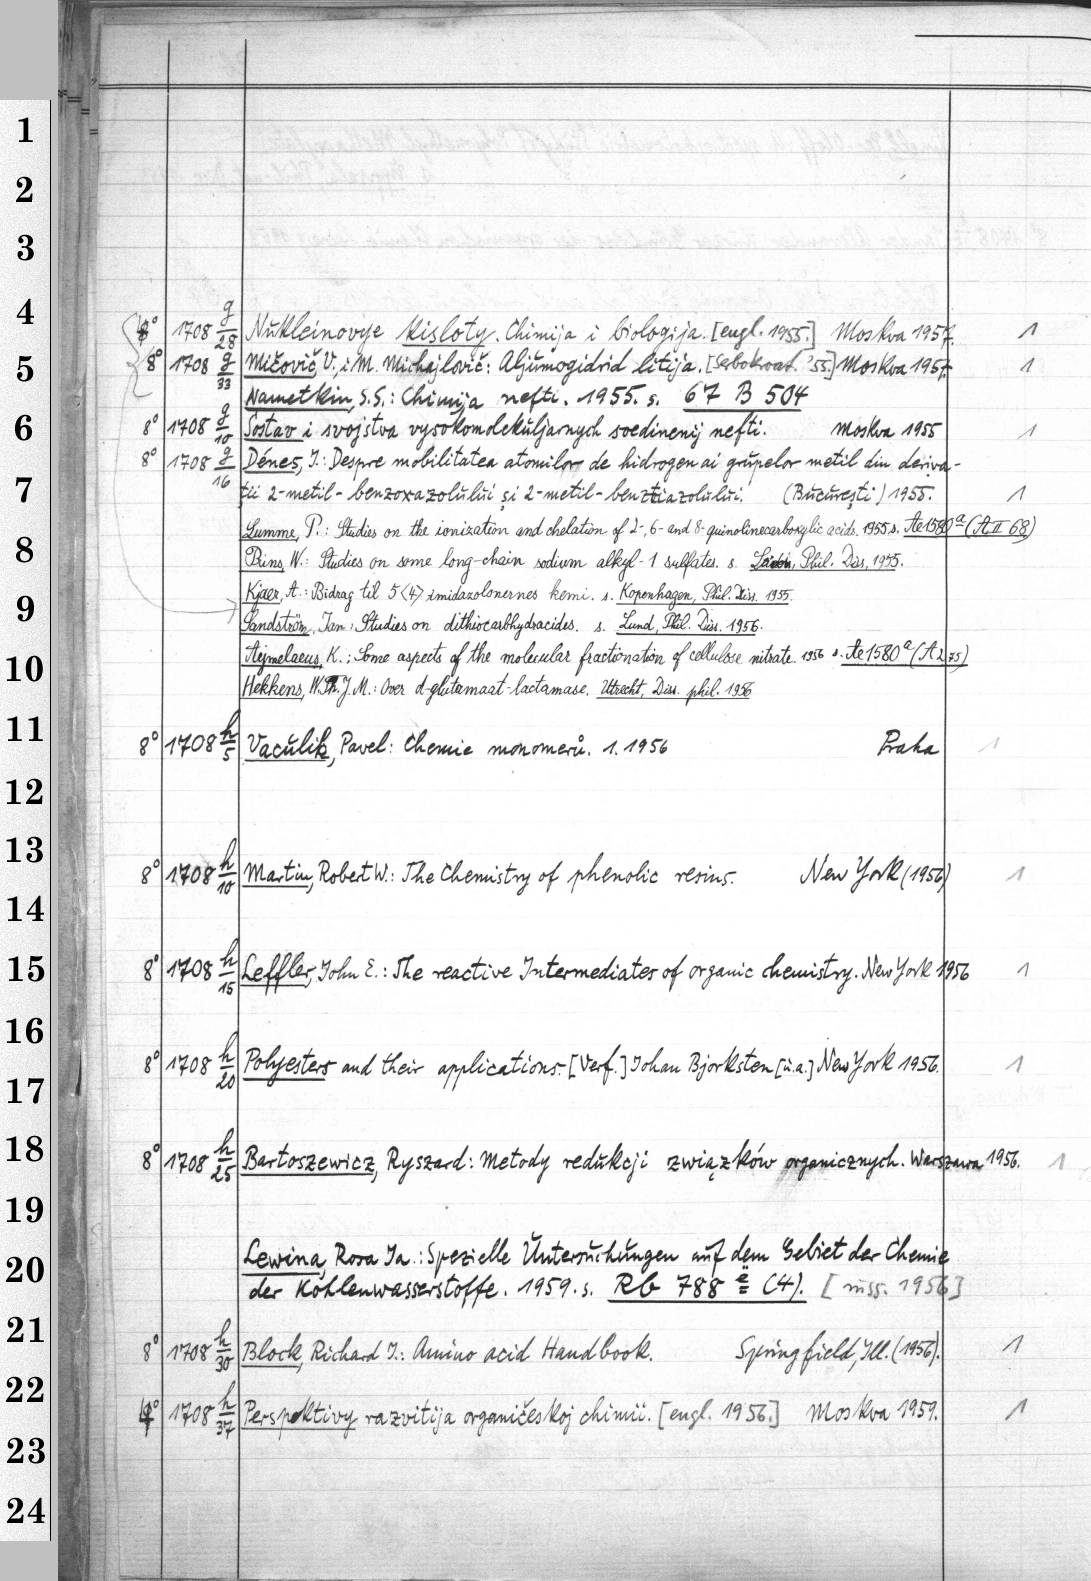 1
2
3
4
8° 1708 g/28 Nukleinovye kisloty. Chimija i biologija. [engl. 1955.] Moskva 1957. 1
5
8° 1708 g/33 Mičovič, V. i M. Michajlovič: Aljumogidrid litija. [serbokroat. '55.] Moskva 1957. 1
Nametkin, S.S.: Chimija nefti. 1955. s. 67 B 504
6
8° 1708 g/10 Sostav i svojstva vysokomolekuljarnych soedinenij nefti. Moskva 1955 1
8° 1708 g/16 Dénes, I.: Despre mobilitatea atomilor de hidrogen ai grupelor metil din deriva-
7
ţii 2-metil-benzoxazolului şi 2-metil-benztiazolului. (Bucureşti) 1955. 1
Lumme, P.: Studies on the ionization and chelation of 2-, 6- and 8-quinolinecarboxylic acids. 1955. s. Ae 1580 a (A II 68)
8
Prins, W.: Studies on some long-chain sodium alkyl-1 sulfates. s. Phil. Diss. 1955.
Kjaer, A.: Bidrag til 5<4> imidazolonernes kemi. s. Kopenhagen, Phil. Diss. 1955.
9
Sandström, Jan: Studies on dithiocarbhydracides. s. Lund, Phil. Diss. 1956.
Aejmelaeus, K.: Some aspects of the molecular fractionation of cellulose nitrate. 1956 s. Ae 1580 a (A 2, 75)
10
Hekkens, W.Th.J.M.: Over d-glutamaat-lactamase. Utrecht, Diss. phil. 1956
11
8° 1708 h/5 Vaculik, Pavel: Chemie monomerů. 1. 1956 Praha 1
12
13
8° 1708 h/10 Martin, Robert W.: The Chemistry of phenolic resins. New York (1956) 1
14
15
8° 1708 h/15 Leffler, John E.: The reactive Intermediates of organic chemistry. New York 1956 1
16
8° 1708 h/20 Polyesters and their applications. [Verf.] Johan Bjorksten [u.a.] New York 1956. 1
17
18
8° 1708 h/25 Bartoszewicz, Ryszard: Metody redukcji związków organicznych. Warszawa 1956. 1
19
Lewina, Rosa Ja.: Spezielle Untersuchungen auf dem Gebiet der Chemie
20
der Kohlenwasserstoffe. 1959. s. Rb 788 e (4). [russ. 1956]
21
8° 1708 h/30 Block, Richard J.: Amino acid Handbook. Springfield, Ill. (1956). 1
22
4° 1708 h/37 Perspektivy razvitija organičeskoj chimii. [engl. 1956.] Moskva 1959. 1
23
24